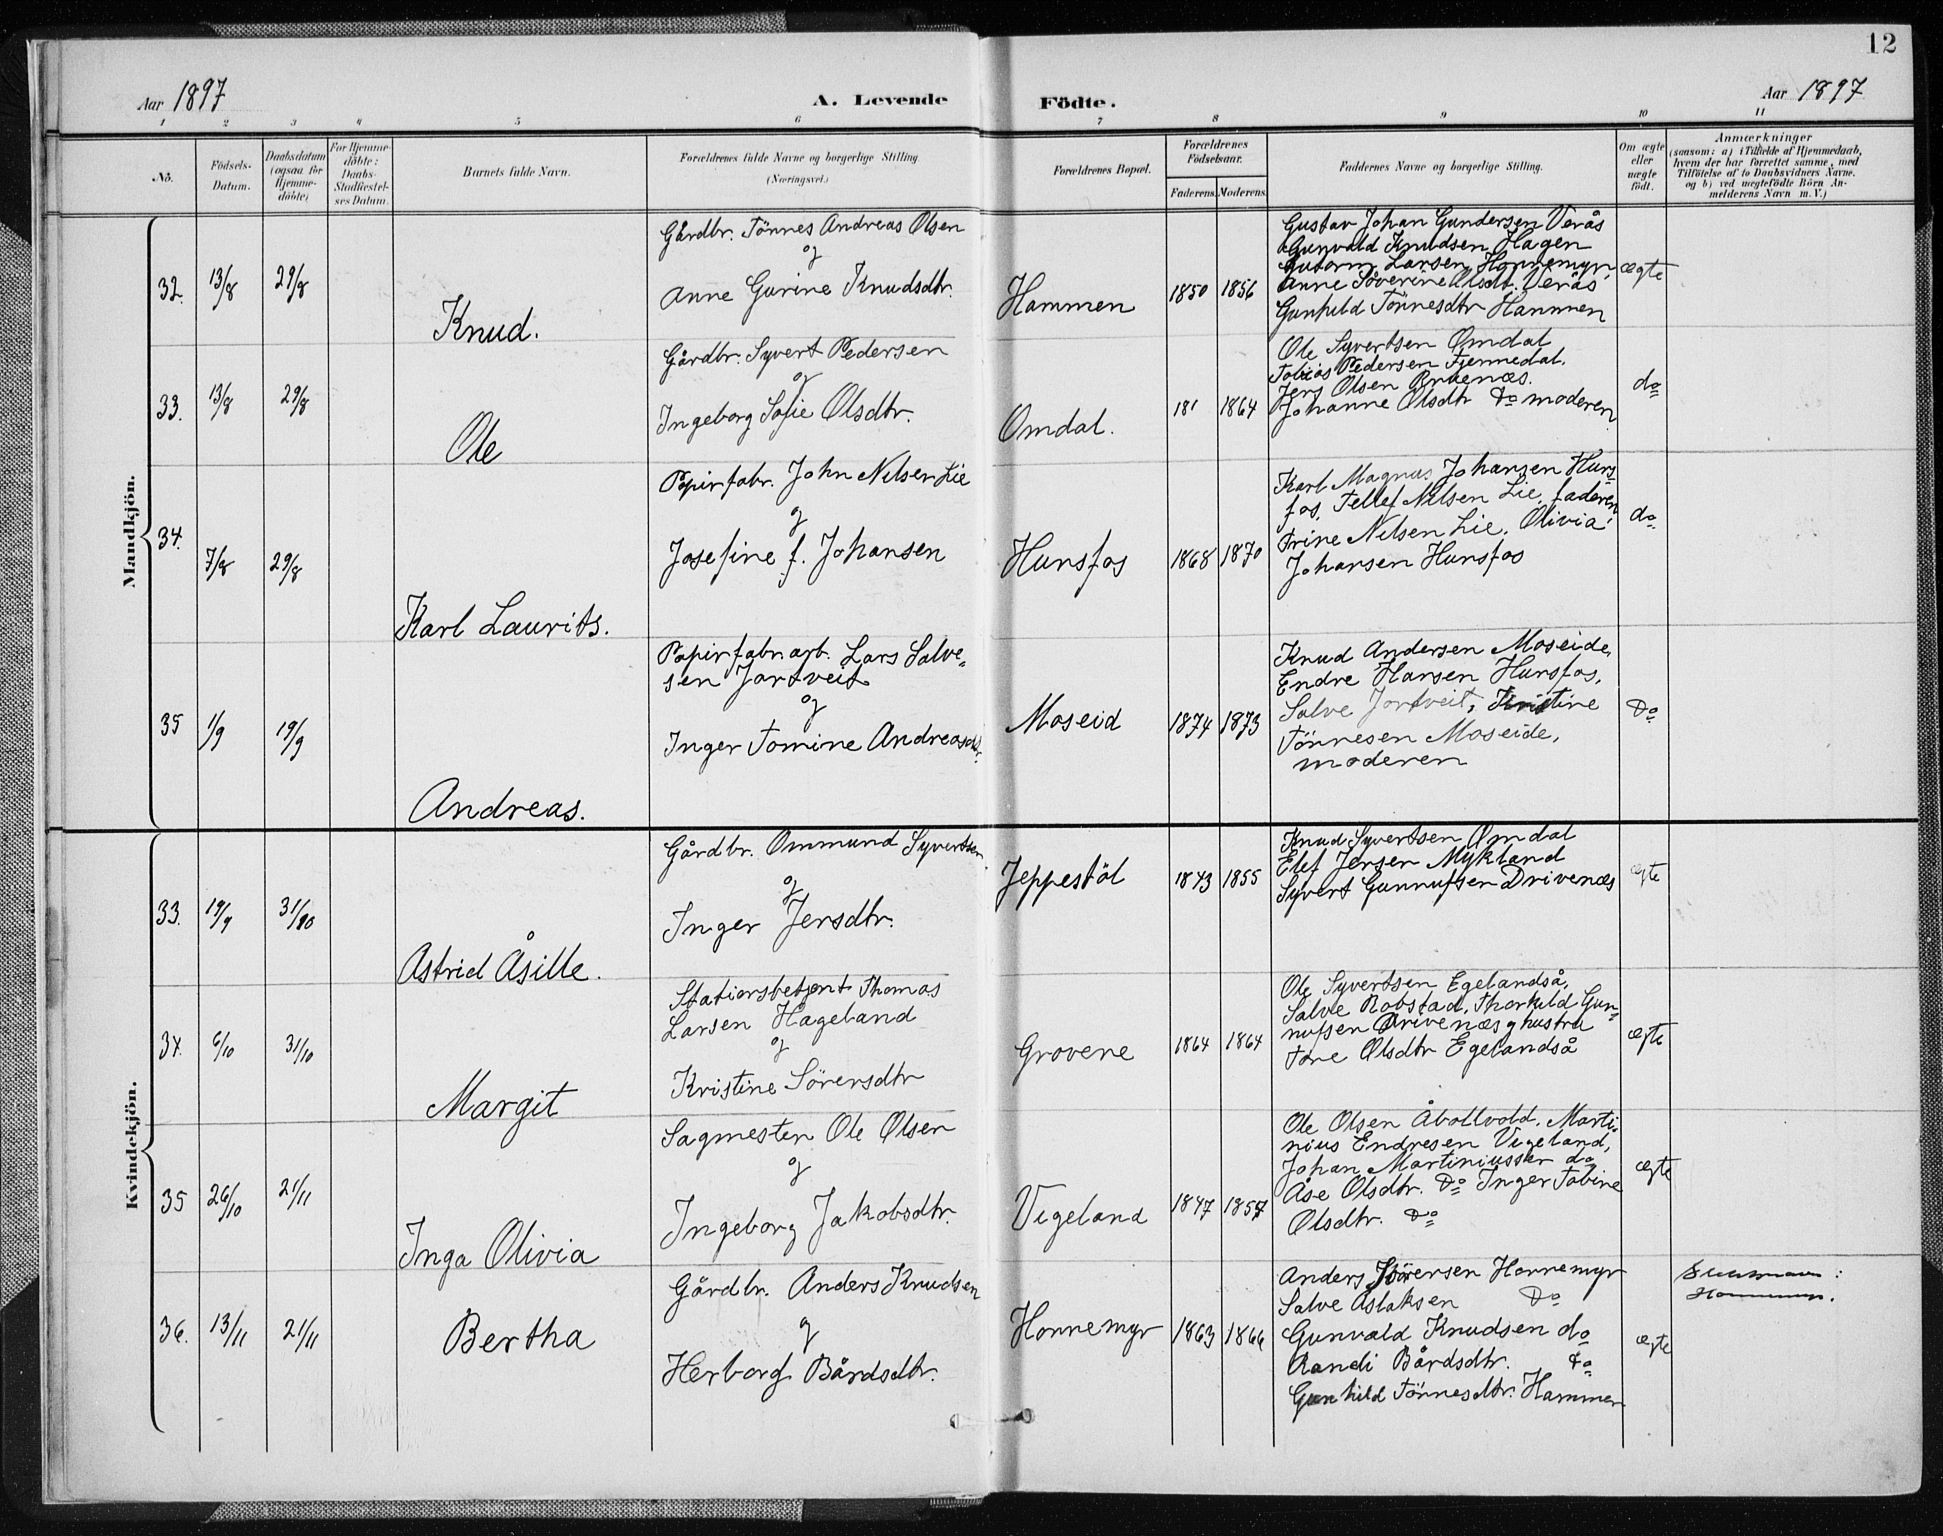 12
Aar 1897
A. Levende
Födte.
Aar 1897
1 2 3 4 5 6 7 8 9 10 11
No.
Födsels-Datum.
Daabsdatum (ogsaa for Hjemme-döbte)
For Hjemme-döbte: Daabs-Stadfæstel-ses Datum.
Barnets fulde Navn.
Forældrenes fulde Navne og borgerlige Stilling.
(Næringsvei.)
Forældrenes Bopæl.
Forældrenes Födselsaar.
Faderens. Moderens.
Faddernes Navne og borgerlige Stilling.
Om ægte eller uægte födt.
Anmærkninger
(saasom: a) i Tilfælde af Hjemmedaab,
hvem der har forrettet samme, med
Tilföielse af to Daabsvidners Navne.
og b) ved uægtefödte Börn An-
melderens Navn m. V.)
Mandkjön.
32. 13/8 29/8
Knud.
Gårdbr. Tönnes Andreas Olsen
og
Anne Gurine Knudsdtr.
Hammen
1850 1856
Gustav Johan Gundersen Verås
Gunvald Knudsen Hagen
Guttorm Larsen Honnemyr,
Anne Severine Olsdt. Verås
Gunhild Tönnesdtr Hammen
ægte
33. 13/8 29/8
Ole
Gårdbr. Syvert Pedersen
og
Ingeborg Sofie Olsdtr.
Omdal.
181 1864
Ole Syvertsen Omdal
Tobias Pedersen Fjennedal.
Jens Olsen
Johanne Olsdtr Do moderen
do
34. 7/8 29/8
Karl Laurits.
Papirfabr. John Nilsen Lie
og
Josefine f. Johansen
Hunsfos
1868 1870
Karl Magnus Johansen Huns-
fos, Tellef Nilsen Lie, faderen
Trine Nilsen Lie. Olivia
Johansen Hunsfos
do
35 1/9 19/9
Andreas.
Papirfabr.arb. Lars Salve-
sen Jortveit
og
Inger Tomine Andreasdtr.
Moseid
1874 1873
Knud Andersen Moseide,
Endre Hansen Hunsfos,
Salve Jortveit, Kristine
Tönnesen Moseide,
moderen
Do
Kvindekjön.
33. 19/9 31/10
Astrid Åsille.
Gårdbr. Ommund Syvertsen
og
Inger Jensdtr.
Jeppestöl
1843 1855
Knud Syvertsen Omdal
Elef Jensen Mykland
Syvert Gunnufsen Drivenæs
ægte
34. 6/10 31/10
Margit
Stationsbetjent Thomas
Larsen Hageland
og
Kristine Sörensdtr
Grovene
1864 1864
Ole Syvertsen Egelandså,
Salve Robstad, Thorkild Gun-
nufsen Drivenæs og hustru
Tone Olsdtr Egelandså
ægte
35 26/10 21/11
Inga Olivia
Sagmester Ole Olsen
og
Ingeborg Jakobsdtr.
Vigeland
1847 1857
Ole Olsen Åbollvold. Marti-
nius Endresen Vigeland,
Johan Martiniussen do
Åse Olsdtr. Do Inger Tobine
Olsdtr. Do
ægte
36. 13/11 21/11
Bertha
Gårdbr. Anders Knudsen
og
Herborg Bårdsdtr.
Honnemyr
1863 1866
Anders Sörensen Honnemyr
Salve Aslaksen Do
Gunvald Knudsen do
Randi Bårdsdtr. do
Gunhild Tönnesdtr. Hammen
ægte